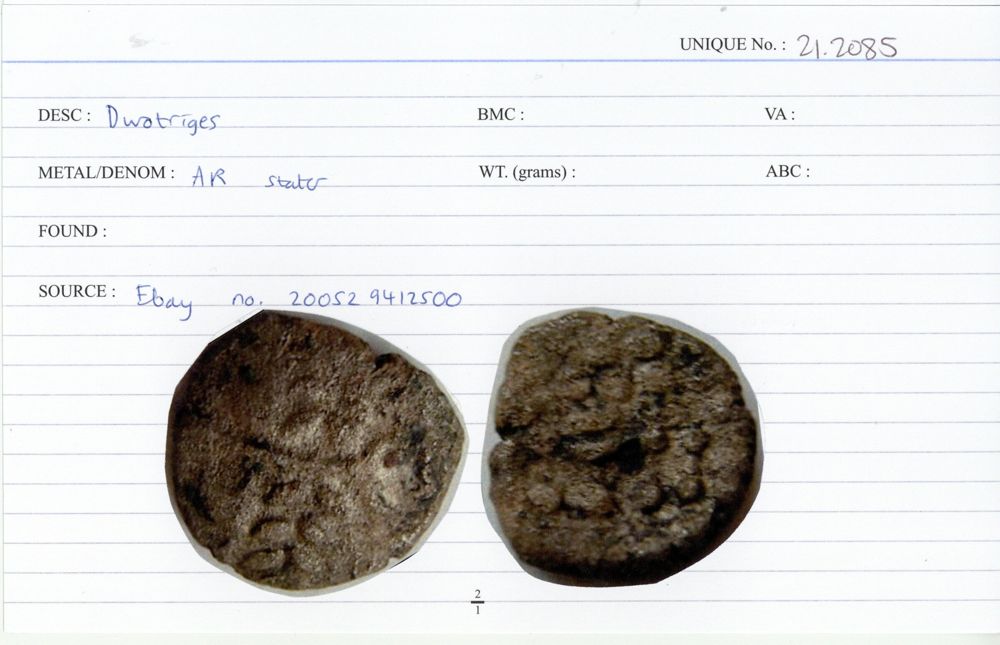 UNIQUE No. : 21.2085
DESC : Durotriges BMC : VA :
METAL/DENOM : AR stater WT. (grams) : ABC :
FOUND :
SOURCE : Ebay no. 200529412500
2
1